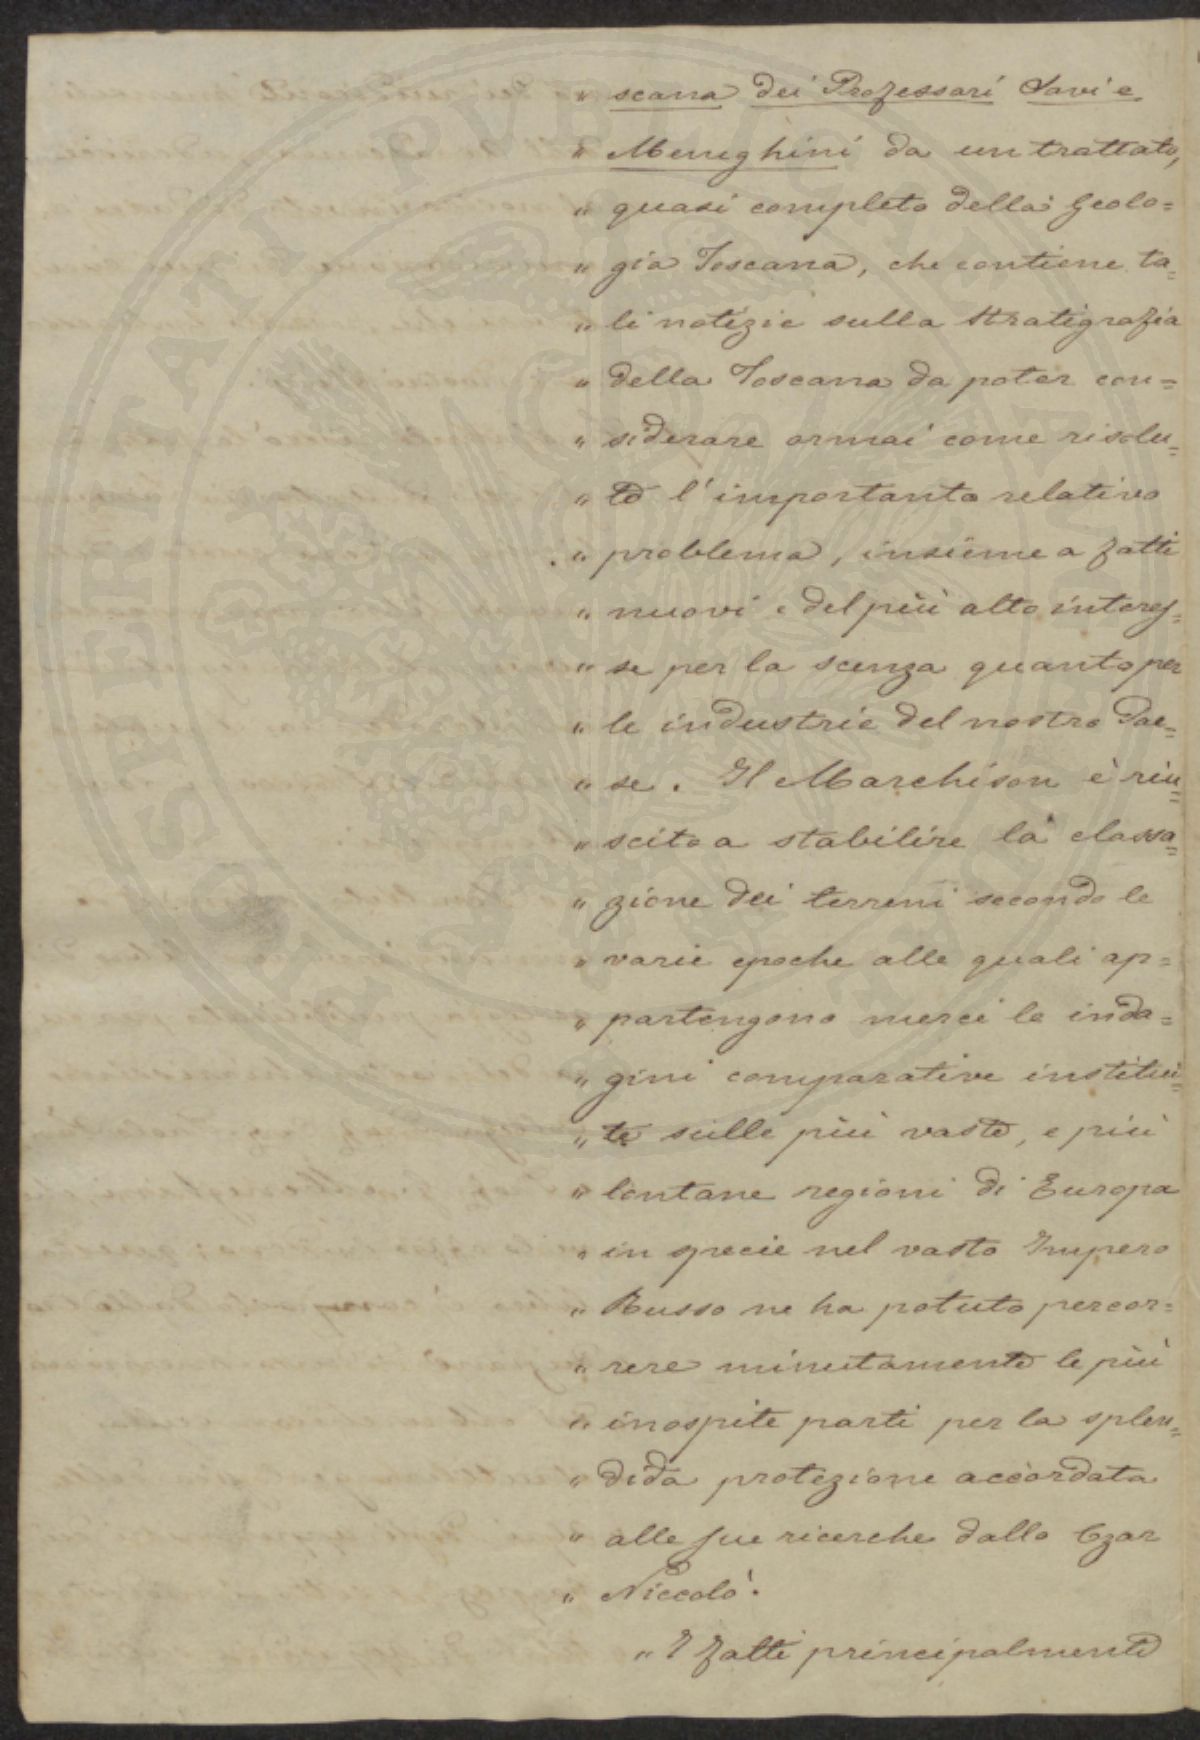 " scana dei Professori Savi e
" Meneghini da un trattato,
" quasi completo della Geolo=
" gia Toscana, che contiene ta=
" li notizie sulla Stratigrafia
" della Toscana da poter con=
" siderare ormai come risolu=
" to l'importanto relativo
" problema, insieme a fatti
" nuovi e del più alto interes=
" se per la scenza quanto per
" le industrie del nostro Pae=
" se. Il Marchison è riu=
" scito a stabilire la classa=
" zione dei terreni secondo le
" varie epoche alle quali ap=
" partengono mercè le inda=
" gini comparative institui=
" te sulle più vaste, e più
" lontane regioni di Europa
" in specie nel vasto Impero
" Russo ne ha potuto percor=
" rere minutamente le più
" inospite parti per la splen=
" dida protezione accordata
" alle sue ricerche dallo Czar
" Niccolò.
" I fatti principalmente
HOSPITALITATI PVBLICAE